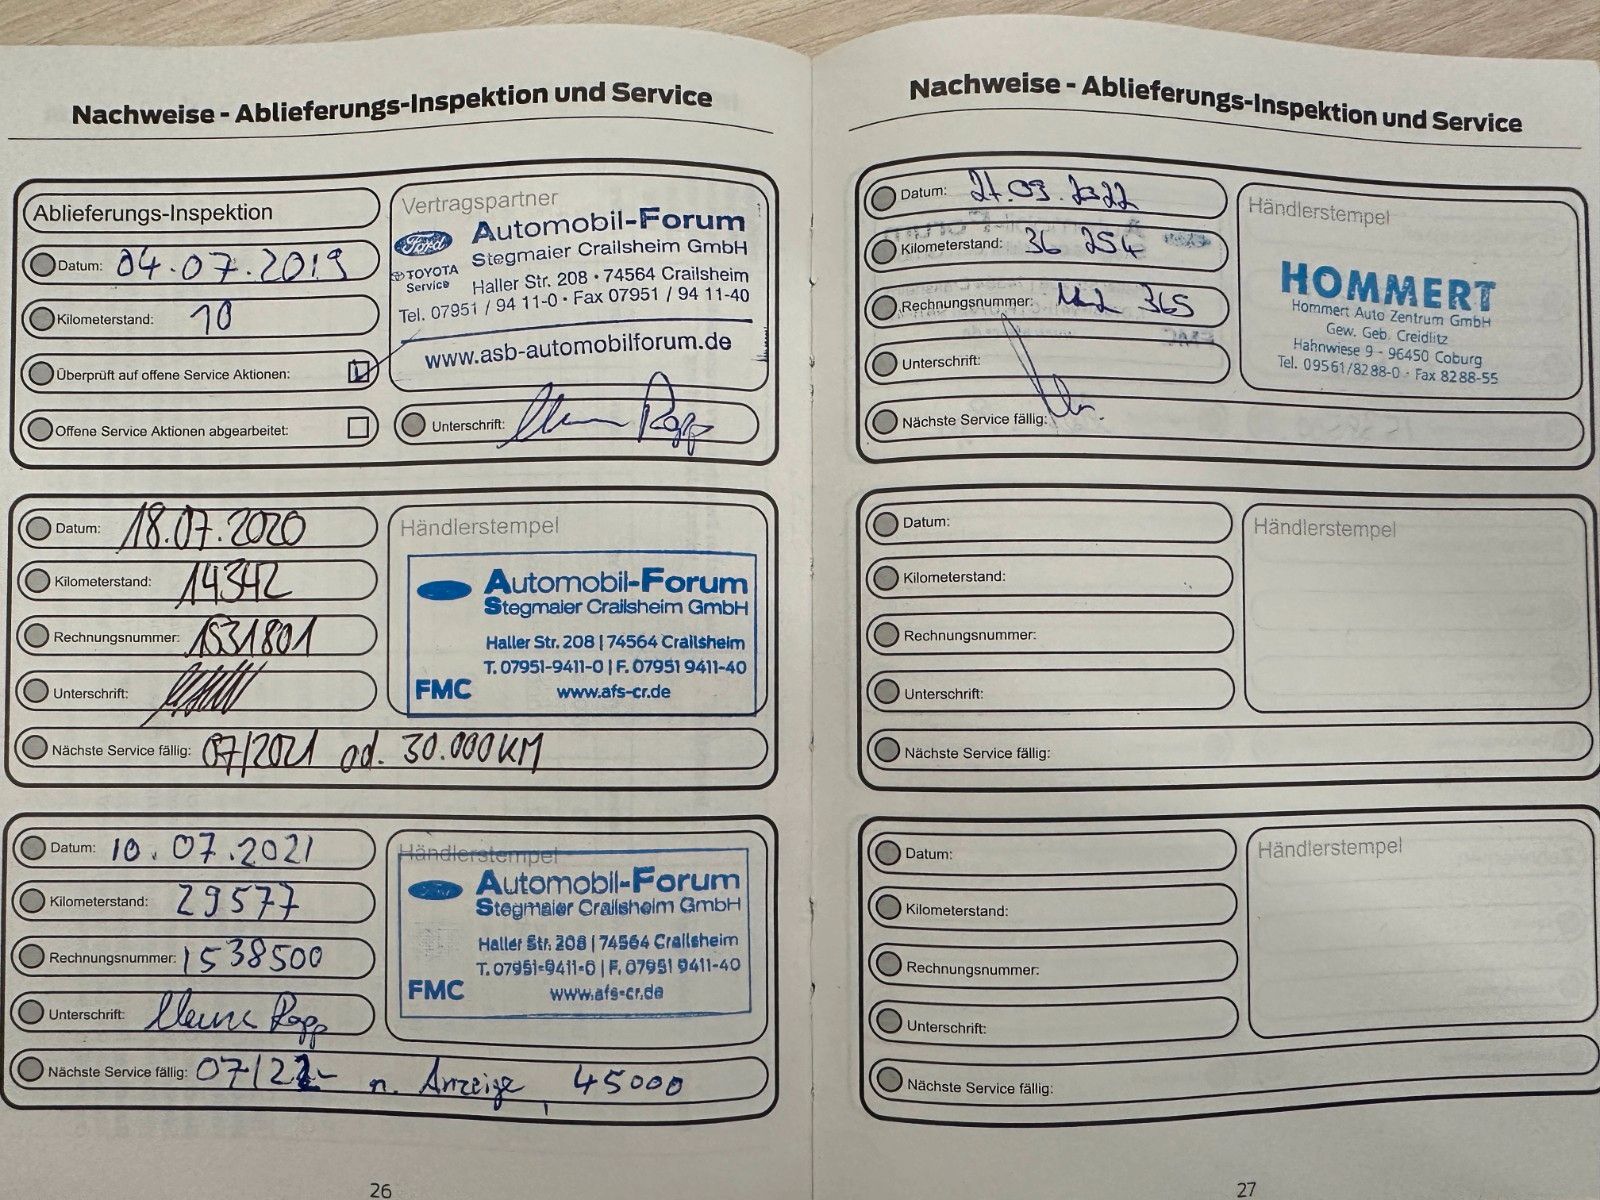 Nachweise - Ablieferungs-Inspektion und Service
Ablieferungs-Inspektion
Datum: 04.07.2019
Kilometerstand: 10
Überprüft auf offene Service Aktionen:
Offene Service Aktionen abgearbeitet:
Vertragspartner
Ford
Automobil-Forum
Stegmaier Crailsheim GmbH
TOYOTA
Service
Haller Str. 208 · 74564 Crailsheim
Tel. 07951 / 94 11-0 · Fax 07951 / 94 11-40
www.asb-automobilforum.de
Unterschrift: Rapp
Datum: 18.07.2020
Kilometerstand: 14342
Rechnungsnummer: 1531801
Unterschrift:
Nächste Service fällig: 07/2021 od. 30.000KM
Händlerstempel
Automobil-Forum
Stegmaier Crailsheim GmbH
Haller Str. 208 | 74564 Crailsheim
T. 07951-9411-0 | F. 07951 9411-40
FMC www.afs-cr.de
Datum: 10.07.2021
Kilometerstand: 29577
Rechnungsnummer: 1538500
Unterschrift: Rapp
Nächste Service fällig: 07/22 n. Anzeige, 45000
Händlerstempel
Automobil-Forum
Stegmaier Crailsheim GmbH
Haller Str. 208 | 74564 Crailsheim
T. 07951-9411-0 | F. 07951 9411-40
FMC www.afs-cr.de
26
Nachweise - Ablieferungs-Inspektion und Service
Datum: 03.2022
Kilometerstand: 36 254
Rechnungsnummer: 365
Unterschrift:
Nächste Service fällig:
Händlerstempel
HOMMERT
Hommert Auto Zentrum GmbH
Gew. Geb. Creidlitz
Hahnwiese 9 - 96450 Coburg
Tel. 09561/8288-0 · Fax 8288-55
Datum:
Kilometerstand:
Rechnungsnummer:
Unterschrift:
Nächste Service fällig:
Händlerstempel
Datum:
Kilometerstand:
Rechnungsnummer:
Unterschrift:
Nächste Service fällig:
Händlerstempel
27